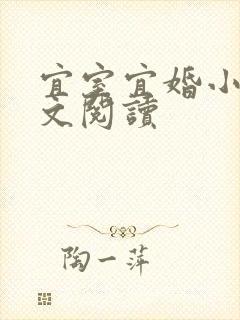 宜室宜婚小
文閱讀
陶一萍